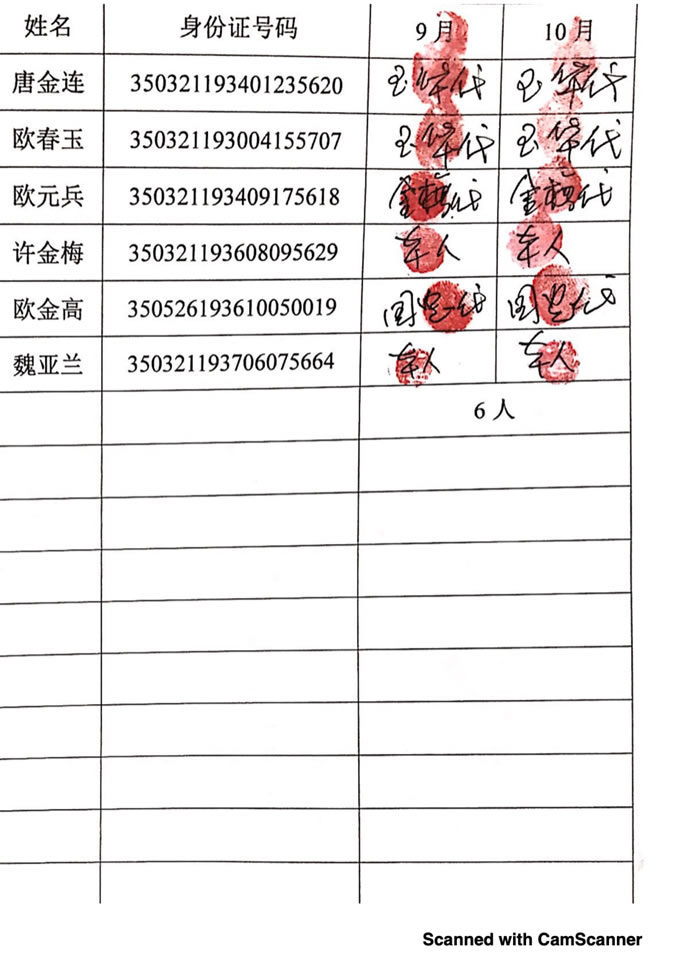 姓名 身份证号码 9月 10月
唐金连 350321193401235620 玉华代 玉华代
欧春玉 350321193004155707 玉华代 玉华代
欧元兵 350321193409175618 金梅代 金梅代
许金梅 350321193608095629 本人 本人
欧金高 350526193610050019 代 代
魏亚兰 350321193706075664 本人 本人
6人
Scanned with CamScanner